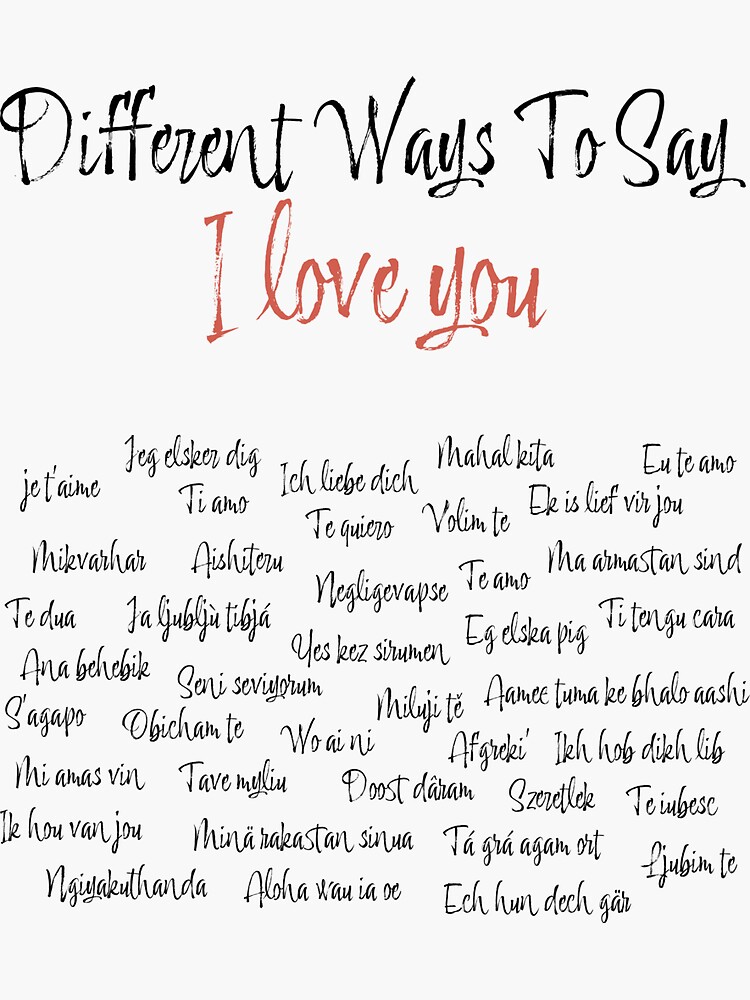 Different Ways To Say
I love you
Jeg elsker dig
Mahal kita
Eu te amo
je t'aime
Ti amo
Ich liebe dich
Ek is lief vir jou
Te quiero
Volim te
Mikvarhar
Aishiteru
Negligevapse
Te amo
Ma armastan sind
Te dua
Ja ljubljù tibjá
Yes kez sirumen
Eg elska pig
Ti tengu cara
Ana behebik
Seni seviyorum
Miluji tě
Aamee tuma ke bhalo aashi
S'agapo
Obicham te
Wo ai ni
Afgreki'
Ikh hob dikh lib
Mi amas vin
Tave myliu
Doost dâram
Szeretlek
Te iubesc
Ik hou van jou
Minä rakastan sinua
Tá grá agam ort
Ljubim te
Ngiyakuthanda
Aloha wau ia oe
Ech hun dech gär